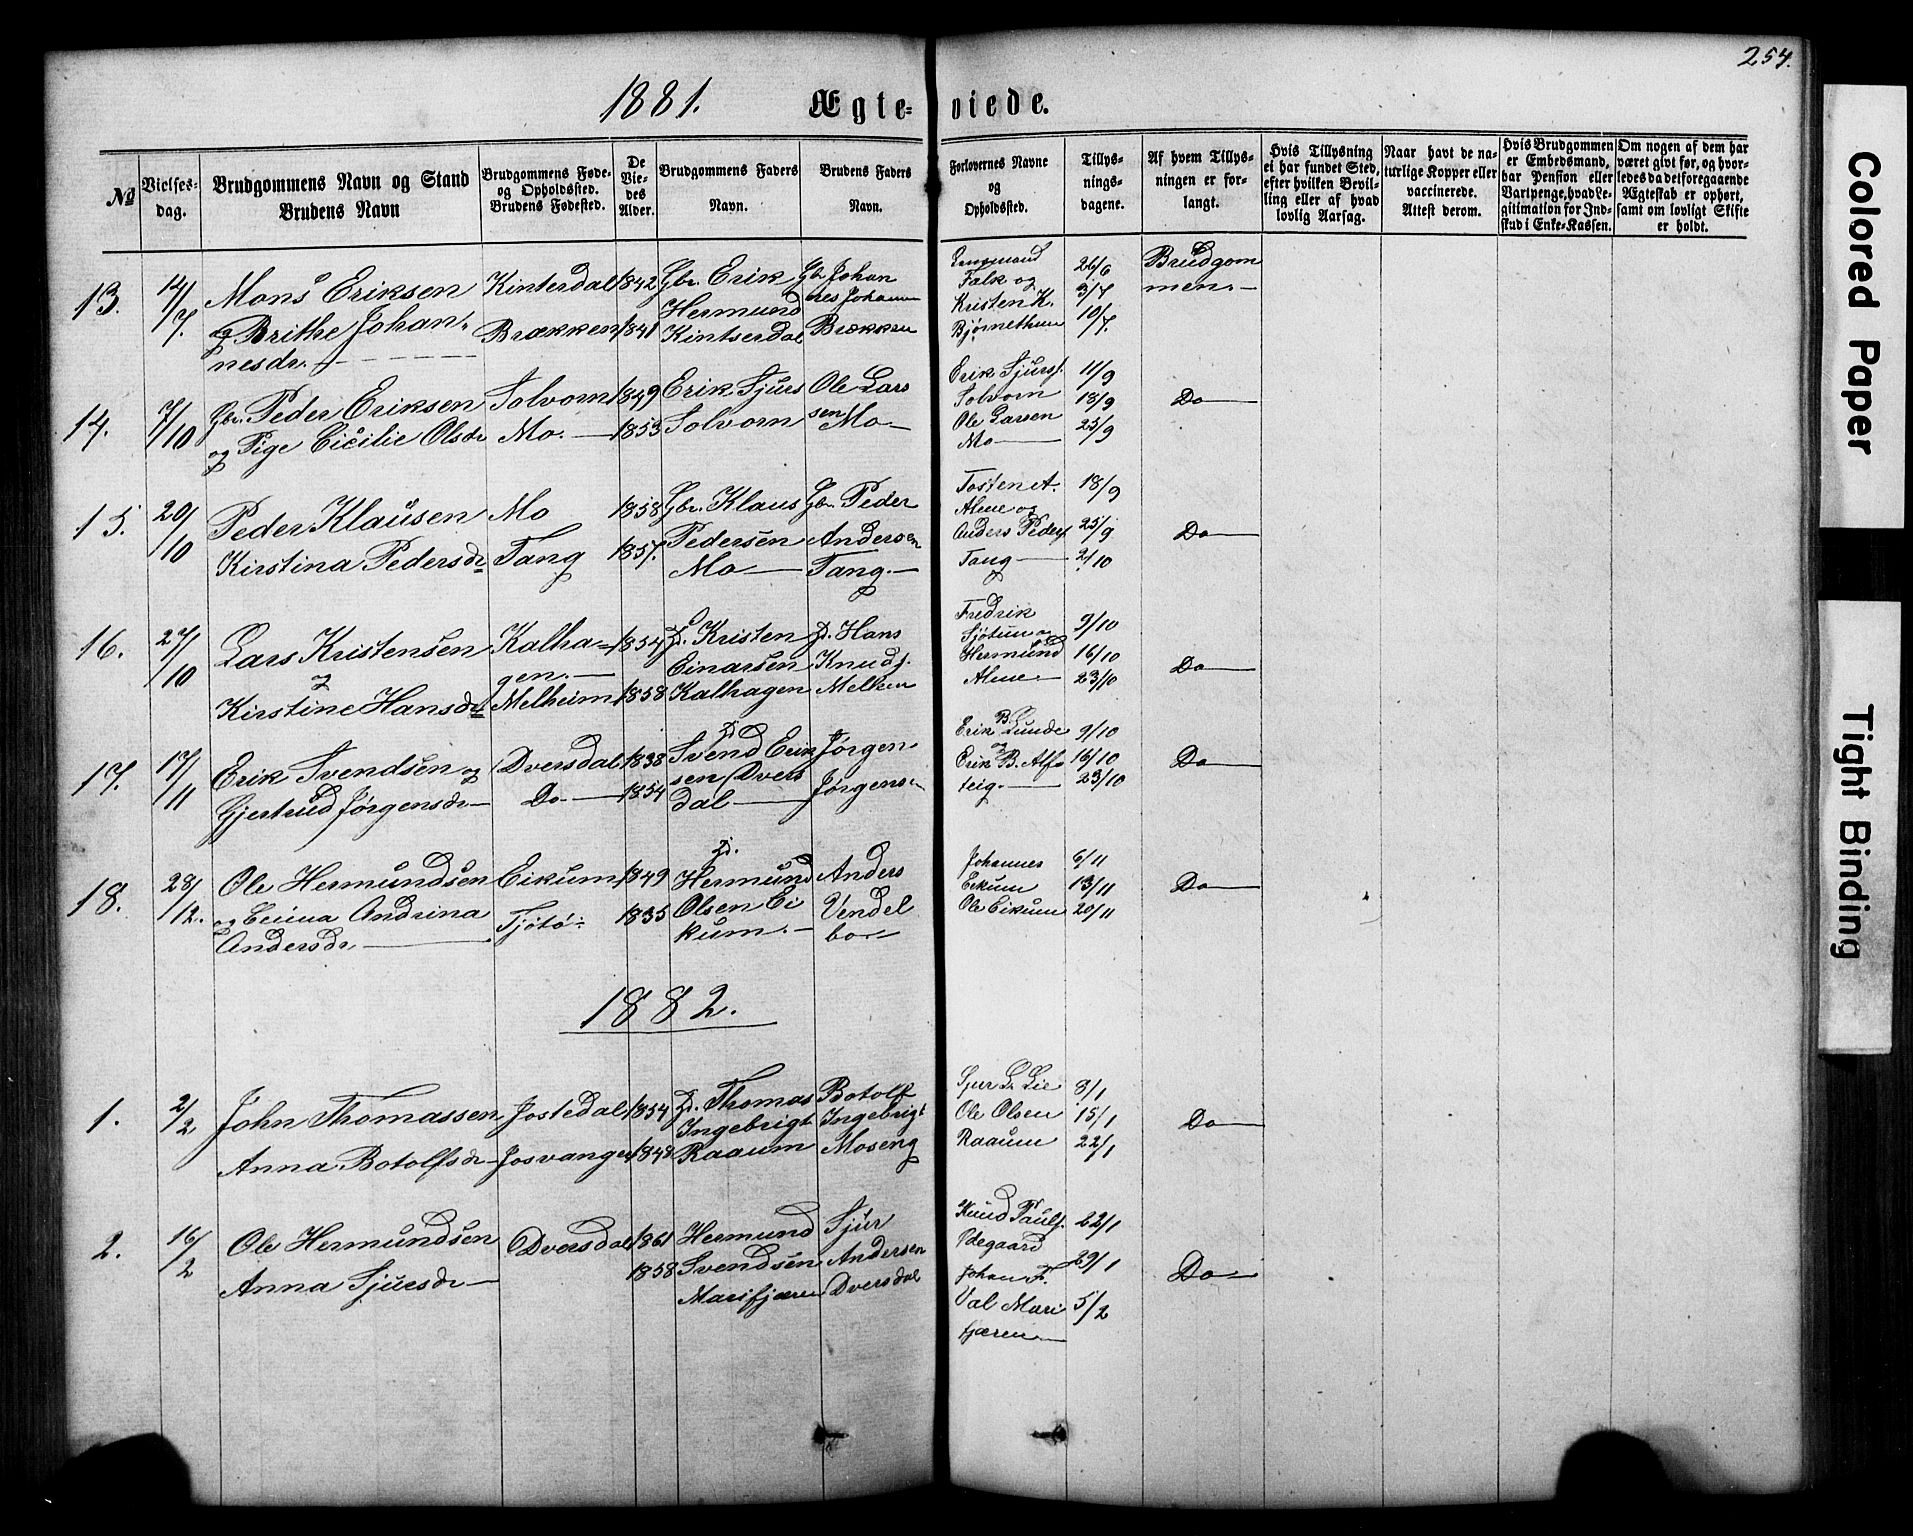 254.
1881. Ægte- viede.
№
Vielses-
dag.
Brudgommens Navn og Stand
Brudens Navn
Brudgommens Føde-
og Opholdssted.
Brudens Fødested.
De
Vie-
des
Alder.
Brudgommens Faders
Navn.
Brudens Faders
Navn.
Forlovernes Navne
og
Opholdssted.
Tillys-
nings-
dagene.
Af hvem Tillys-
ningen er for-
langt.
Hvis Tillysning
ei har fundet Sted,
efter hvilken Bevil-
ling eller af hvad
lovlig Aarsag.
Naar havt de na-
turlige Kopper eller
vaccinerede.
Attest derom.
Hvis Brudgommen
er Embedsmand,
har Pension eller
Vartpenge, hvad Le-
gitimation for Ind-
skud i Enke-Kassen.
Om nogen af dem har
været givt før, og hvor-
ledes da det foregaaende
Ægteskab er ophørt,
samt om lovligt Skifte
er holdt.
13.
14/7.
Mons Eriksen
og Brithe Johan-
nesdr.
Kinserdal
Brækken
1842
1841
Gbr. Erik
Hermund
Kintserdal
Gbr. Johan
nes Johann
Brækken
Falk og
Kristen K.
Bjørnethun
26/6
3/7
10/7.
Brudgom
men.
14.
7/10
Gbr. Peder Eriksen
og Pige Cicilie Olsdr
Solvorn
Mo.
1849
1853
Erik Sjurs
Solvorn
Ole Lars
sen Mo
Erik Sjurs.
Solvorn
Ole Larsen
Mo
11/9
18/9
25/9
Do
15.
20/10
Peder Klausen
Kirstina Pedersdr
Mo
Tang
1858
1857.
Gbr. Klaus
Pedersen
Mo
Gbr. Peder
Andersen
Tang.
Tosten A.
Alme og
Anders Peders
Tang
18/9
25/9
2/10
Do
16.
27/10
Lars Kristensen
og
Kirstine Hansdr
Kalha-
gen.
Melheim
1854
1858
Kristen
Einarsen
Kalhagen
Hans
Knuds.
Fredrik
Sjøtun og
Hermund
Alme
9/10
16/10
23/10
Do
17.
17/11
Erik Svendsen og
Gjertrud Jørgensdr
Dversdal
Do
1838
1854
Svend Erik
sen Dvers
dal
Jørgen
Jørgens
Erik B. Lunde
og
Erik B. Alfs
teig.
9/10
16/10
23/10
Do
18.
28/12.
Ole Hermundsen
og Andrina
Andersdr
Eikum
Tjøtø
1849
1835
Hermund
Olsen Ei
kum.
Anders
Vendel
bo
Johannes
Eikum
Ole Eikum
6/11
13/11
20/11
Do
1882.
1.
2/2
John Thomassen
Anna Botolfsdr
Jostedal
1854
1848
Thomas
Ingebrigt
Raaum
Botolf
Ingebrigt
Moseng
Sjur L. Lie
Ole Olsen
Raaum
8/1
15/1
22/1
Do
2.
16/2
Ole Hermundsen
Anna Sjursdr
Dversdal
1861
1858
Hermund
Svendsen
Marifjæren
Sjur
Andersen
Dversdal
Knud Pauls.
Ødegaard
Johan F.
Val Mari
fjæren
22/1
29/1
5/2
Do
Colored Paper
Tight Binding